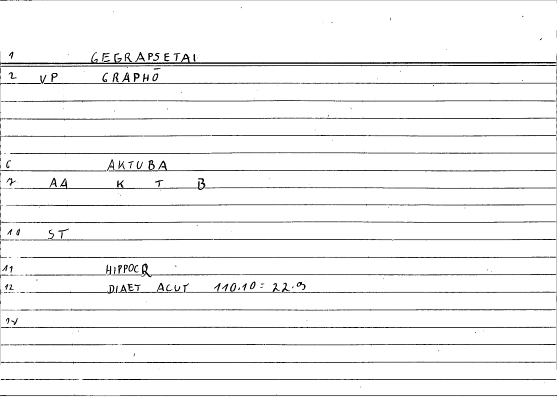 1 GEGRAPSETAI
2 VP GRAPHŌ
6 AKTUBA
7 AA K T B
10 ST
11 HIPPOCR
12 DIAET ACUT 110.10 = 22.9
14